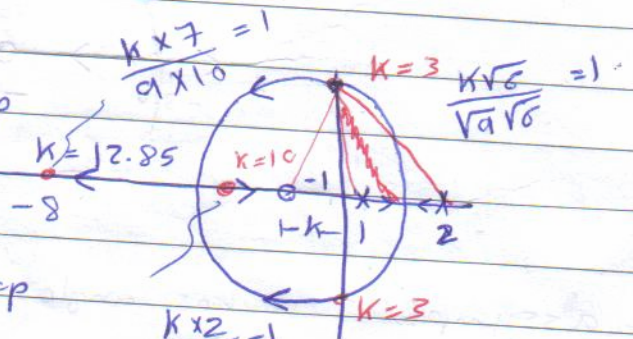 K × 7 / 9 × 10 = 1
K = 3
K√6 / √9 √6 = 1
K = 12.85
K = 10
-1
-8
1
2
=P
K = 3
K × 2 = 1